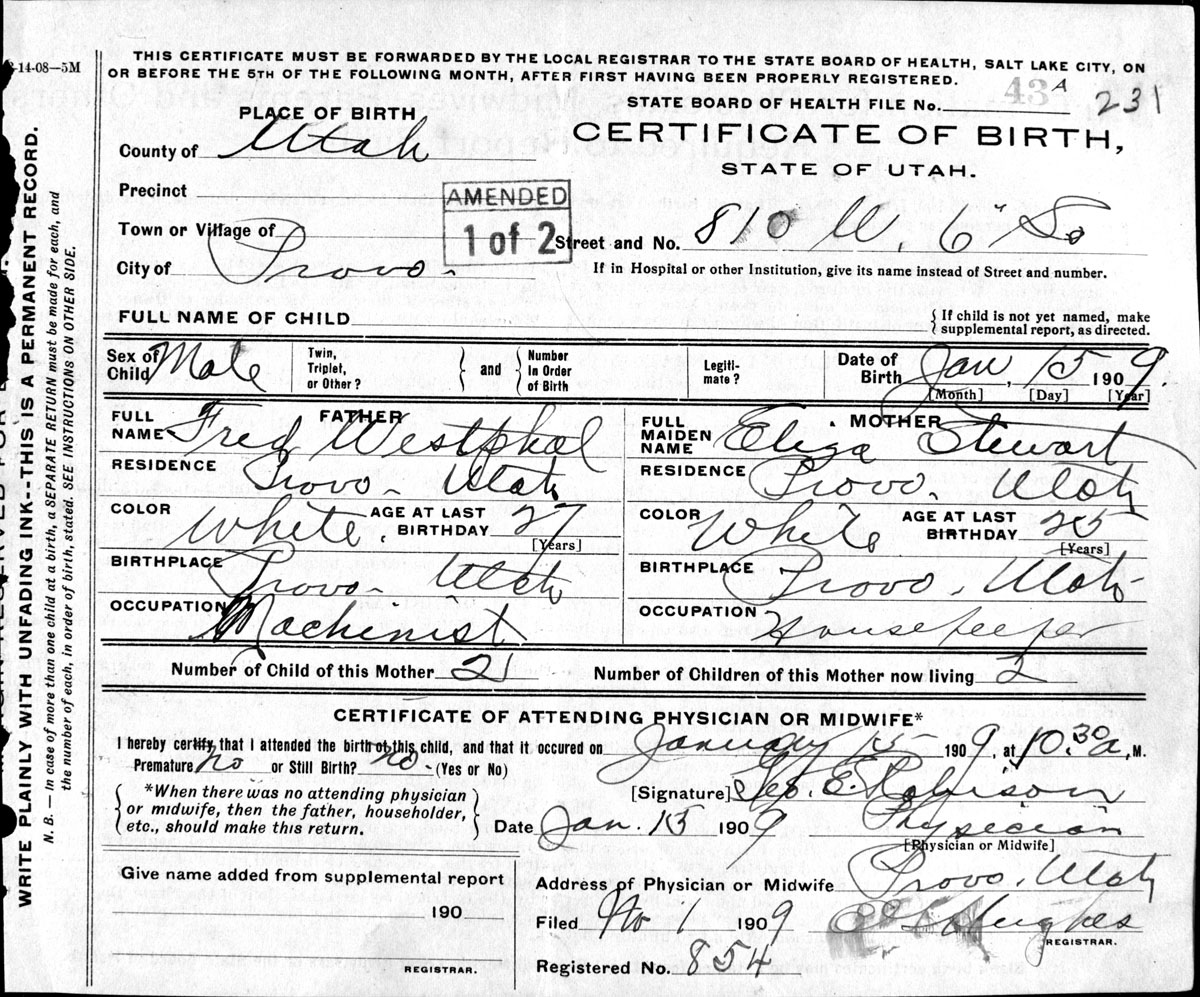 2-14-08—5M
THIS CERTIFICATE MUST BE FORWARDED BY THE LOCAL REGISTRAR TO THE STATE BOARD OF HEALTH, SALT LAKE CITY, ON
OR BEFORE THE 5TH OF THE FOLLOWING MONTH, AFTER FIRST HAVING BEEN PROPERLY REGISTERED.
STATE BOARD OF HEALTH FILE No. 43 A 231
PLACE OF BIRTH
CERTIFICATE OF BIRTH,
STATE OF UTAH.
County of Utah
Precinct
AMENDED
1 of 2
Town or Village of
Street and No. 810 W. 6" So
City of Provo.
If in Hospital or other Institution, give its name instead of Street and number.
FULL NAME OF CHILD
{ If child is not yet named, make
supplemental report, as directed.
Sex of Child Male
Twin, Triplet, or Other?
and
Number In Order of Birth
Legiti-mate?
Date of Birth Jan, 15 1909.
[Month] [Day] [Year]
FATHER
FULL NAME Fred Westphal
RESIDENCE Provo - Utah
COLOR White. AGE AT LAST BIRTHDAY 27
[Years]
BIRTHPLACE Provo - Utah
OCCUPATION Machinist
MOTHER
FULL MAIDEN NAME Eliza Stewart
RESIDENCE Provo. Utah
COLOR White AGE AT LAST BIRTHDAY 25
[Years]
BIRTHPLACE Provo. Utah
OCCUPATION Housekeeper
Number of Child of this Mother 2
Number of Children of this Mother now living 2
CERTIFICATE OF ATTENDING PHYSICIAN OR MIDWIFE*
I hereby certify that I attended the birth of this child, and that it occured on January 15 1909, at 10.30 a, M.
Premature no or Still Birth? no. (Yes or No)
[Signature] Geo. E. Robison
{ *When there was no attending physician
or midwife, then the father, householder,
etc., should make this return. }
Date Jan. 15 1909
Physician
[Physician or Midwife]
Give name added from supplemental report
190
REGISTRAR.
Address of Physician or Midwife Provo, Utah
Filed 1 1909 Hughes
REGISTRAR.
Registered No. 854
WRITE PLAINLY WITH UNFADING INK--THIS IS A PERMANENT RECORD.
N. B. — In case of more than one child at a birth, a SEPARATE RETURN must be made for each, and
the number of each, in order of birth, stated. SEE INSTRUCTIONS ON OTHER SIDE.